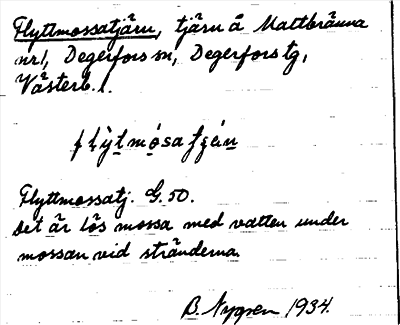 Flyttmossatjärn, tjärn å Mattbränna
nr1, Degerfors sn, Degerfors tg,
Västerb. l.
Flyttmossatj. G. 50.
Det är lös mossa med vatten under
mossan vid stränderna.
B. Nygren 1934.